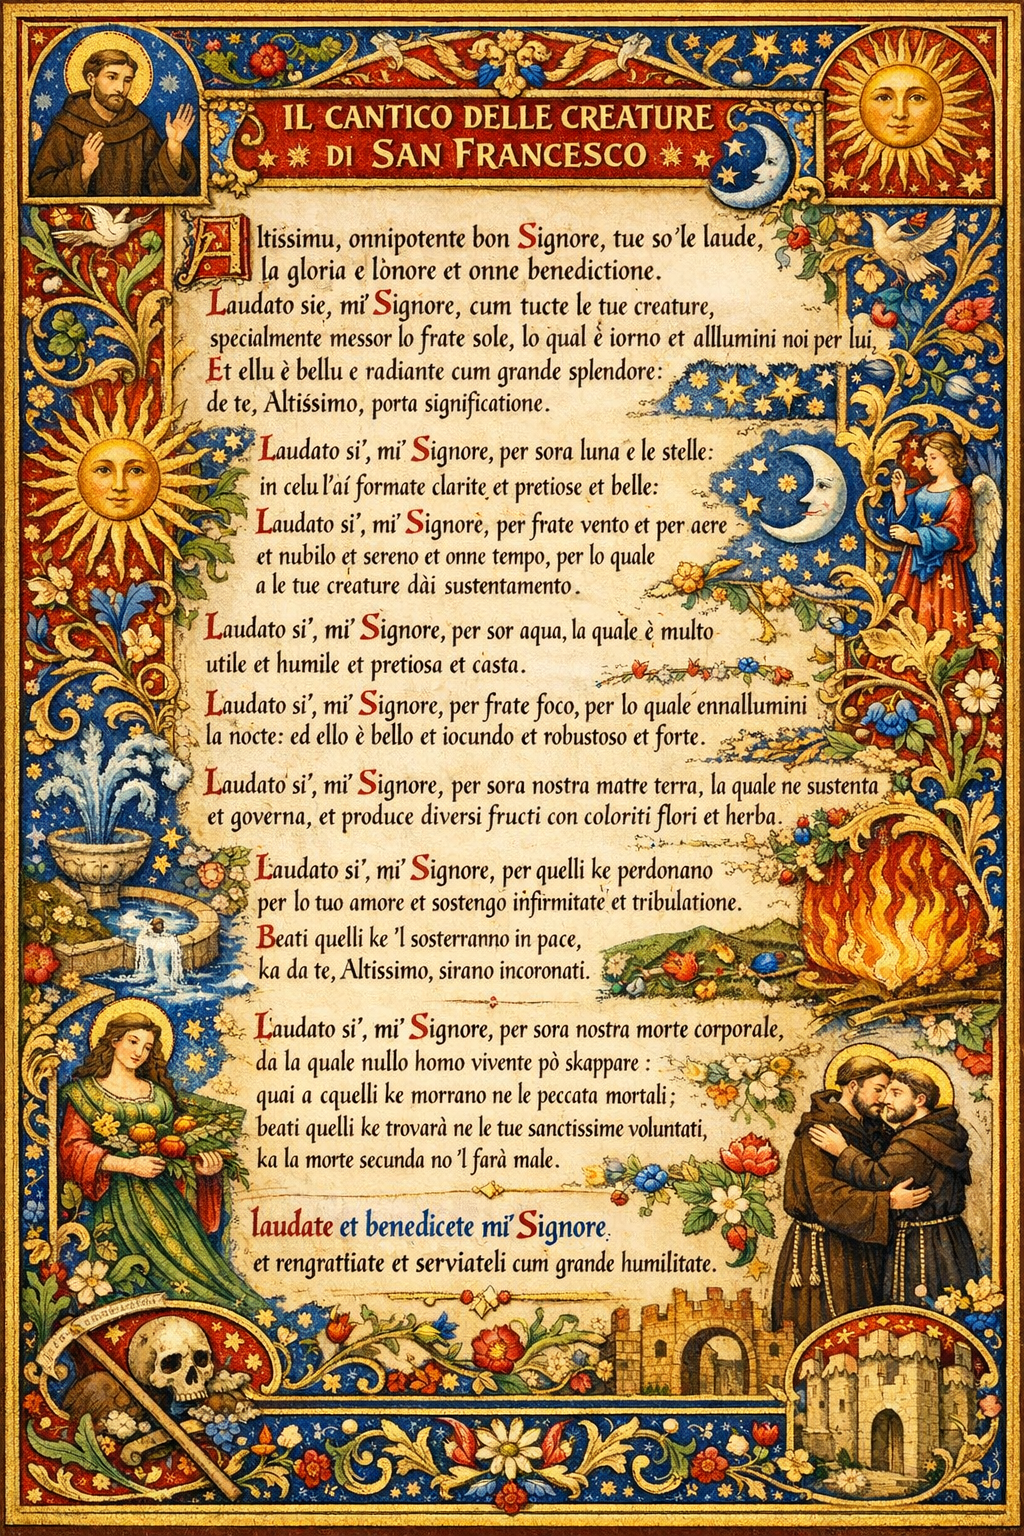 IL CANTICO DELLE CREATURE
DI SAN FRANCESCO
Altissimu, onnipotente bon Signore, tue so' le laude,
la gloria e lònore et onne benedictione.
Laudato sie, mi' Signore, cum tucte le tue creature,
specialmente messor lo frate sole, lo qual è iorno et alllumini noi per lui,
Et ellu è bellu e radiante cum grande splendore:
de te, Altissimo, porta significatione.
Laudato si', mi' Signore, per sora luna e le stelle:
in celu l'ài formate clarite et pretiose et belle:
Laudato si', mi' Signore, per frate vento et per aere
et nubilo et sereno et onne tempo, per lo quale
a le tue creature dài sustentamento.
Laudato si', mi' Signore, per sor aqua, la quale è multo
utile et humile et pretiosa et casta.
Laudato si', mi' Signore, per frate foco, per lo quale ennallumini
la nocte: ed ello è bello et iocundo et robustoso et forte.
Laudato si', mi' Signore, per sora nostra matre terra, la quale ne sustenta
et governa, et produce diversi fructi con coloriti flori et herba.
Laudato si', mi' Signore, per quelli ke perdonano
per lo tuo amore et sostengo infirmitate et tribulatione.
Beati quelli ke 'l sosterranno in pace,
ka da te, Altissimo, sirano incoronati.
Laudato si', mi' Signore, per sora nostra morte corporale,
da la quale nullo homo vivente pò skappare :
quai a cquelli ke morrano ne le peccata mortali;
beati quelli ke trovarà ne le tue sanctissime voluntati,
ka la morte secunda no 'l farà male.
laudate et benedicete mi' Signore.
et rengrattiate et serviateli cum grande humilitate.